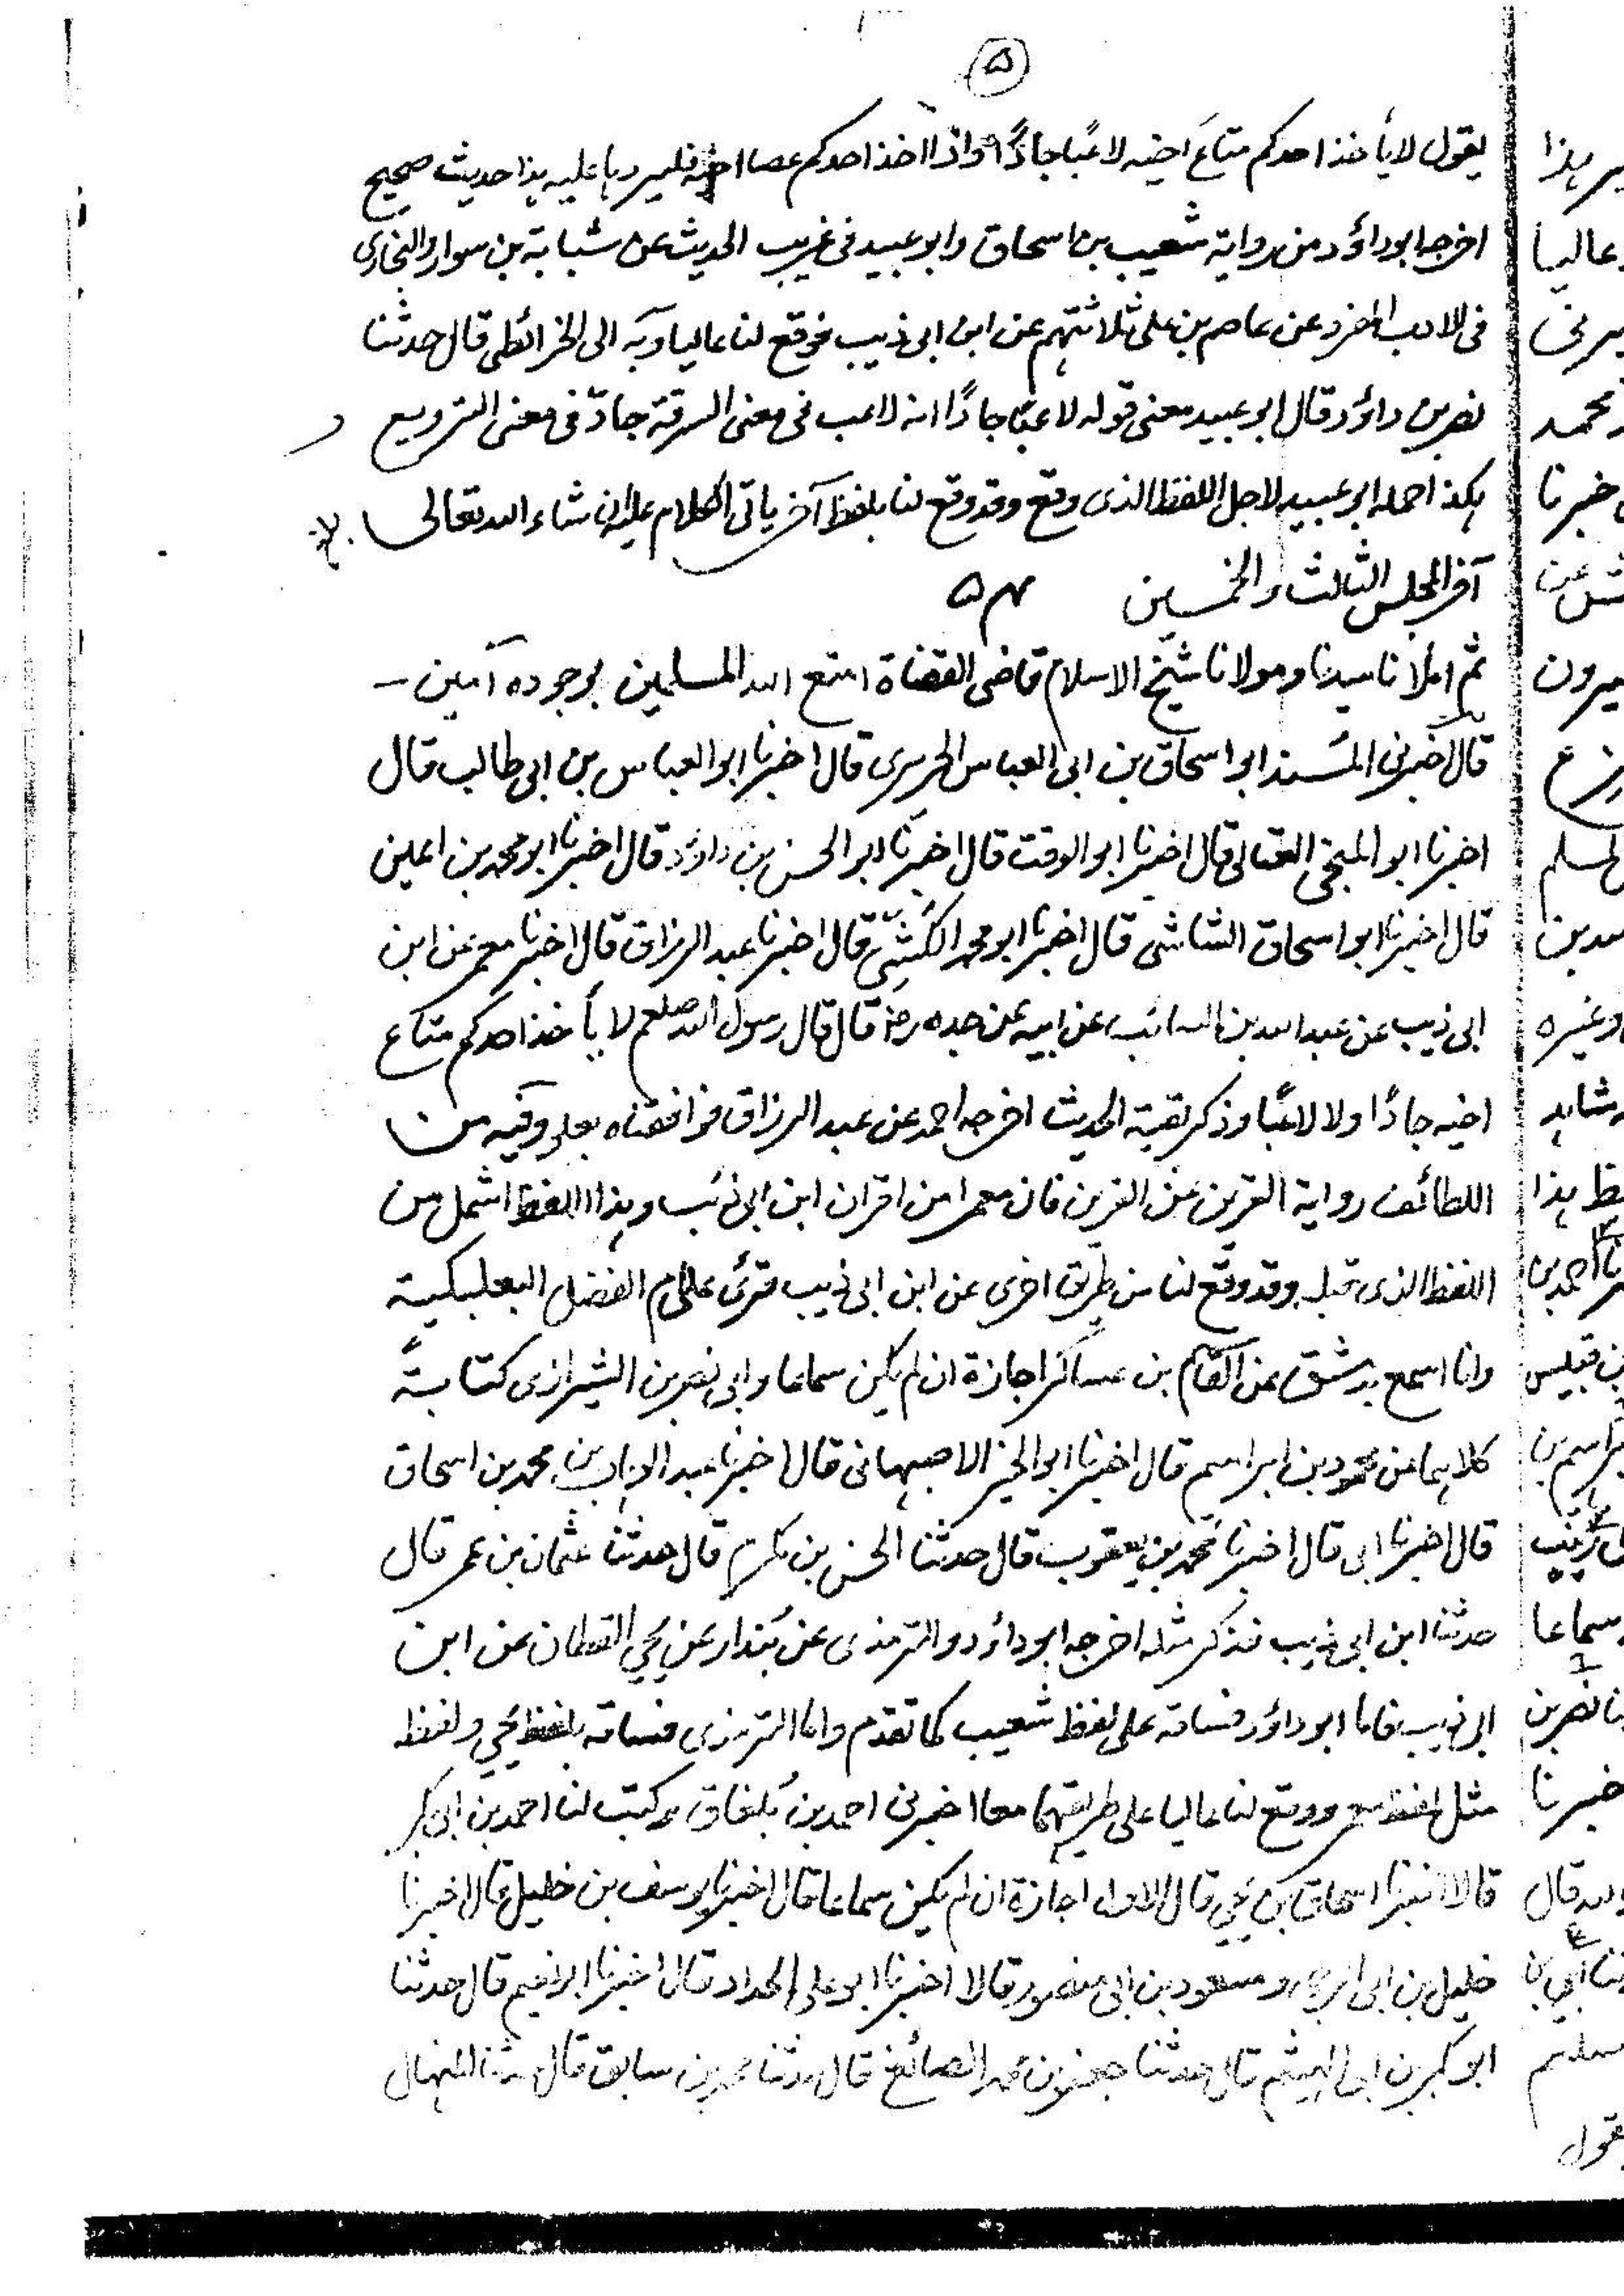 ۵
يقول لا يأخذ احدكم متاعَ اخيه لاعبًا جادًّا واذا اخذ احدكم عصا اخيه فليردها عليه هذا حديث صحيح
اخرجه ابوداؤد من رواية شعيب بن اسحاق وابو عبيد فى غريب الحديث عن شبابة بن سوار والبخارى
فى الادب المفرد عن عاصم بن على ثلاثتهم عن ابن ابى ذيب فوقع لنا عاليا وبه الى الخرائطى قال حدثنا
نصر بن داؤد قال ابو عبيد معنى قوله لاعبًا جادًّا انه لاعب فى معنى السرقة جادّ فى معنى الترويع
هكذا حمله ابو عبيد لاجل اللفظ الذى وقع وقد وقع لنا بلفظ آخر ياتى الكلام عليه ان شاء الله تعالى
آخر المجلس الثالث والخمسين ۵۴
ثم املانا سيدنا ومولانا شيخ الاسلام قاضى القضاة امتع الله المسلمين بوجوده آمين –
قال اخبرنى المسند ابو اسحاق بن ابى العباس الحريرى قال اخبرنا ابو العباس بن ابى طالب قال
اخبرنا ابو المنجى العتابى قال اخبرنا ابو الوقت قال اخبرنا ابو الحسن بن داؤد قال اخبرنا ابو محمد بن اعين
قال اخبرنا ابو اسحاق الشاشى قال اخبرنا ابو محمد الكشّى قال اخبرنا عبد الرزاق قال اخبرنا معمر عن ابن
ابى ذيب عن عبد الله بن السائب عن ابيه عن جده رضـ قال قال رسول الله صلعم لا يأخذ احدكم متاع
اخيه جادًا ولا لاعبًا وذكر بقية الحديث اخرجه احمد عن عبد الرزاق فوافقناه بعلو وفيه من
اللطائف رواية القرين عن القرين فان معمرا من اقران ابن ابى ذئب وهذا اللفظ اشمل من
اللفظ الذى قبله وقد وقع لنا من طريق اخرى عن ابن ابى ذيب قرئ على ام الفضل البعلبكية
وانا اسمع بدمشق عن القاسم بن عساكر اجازة ان لم يكن سماعا وابى نصر بن الشيرازى كتابةً
كلاهما عن محمود بن ابراهيم قال اخبرنا ابو الخير الاصبهانى قال اخبرنا عبد الوهاب بن محمد بن اسحاق
قال اخبرنا ابى قال اخبرنا محمد بن يعقوب قال حدثنا الحسن بن مكرم قال حدثنا عثمان بن عمر قال
حدثنا ابن ابى ذيب فذكر مثله اخرجه ابو داؤد والترمذى عن بُندار عن يحيي القطان عن ابن
ابى ذيب فاما ابو داؤد فساقه على لفظ شعيب كما تقدم واما الترمذى فساقه بلفظ يحيي ولفظه
مثل لفظ معمر ووقع لنا عاليا على طريقهما معا اخبرنى احمد بن بُلغاق وكتب لنا احمد بن ابى بكر
قالا اخبرنا اسحاق بن يحيي قال الاول اجازة ان لم يكن سماعا قال اخبرنا يوسف بن خليل قال اخبرنا
خليل بن ابى الرجاء ومسعود بن ابى منصور قالا اخبرنا ابو على الحداد قال اخبرنا ابو نعيم قال حدثنا
ابو بكر بن ابى الهيثم قال حدثنا جعفر بن محمد الصائغ قال حدثنا محمد بن سابق قال حدثنا المنهال
هذا
عاليا
محمد
خبرنا
عن
وغيره
هذا
سماعا
خبرنا
قال